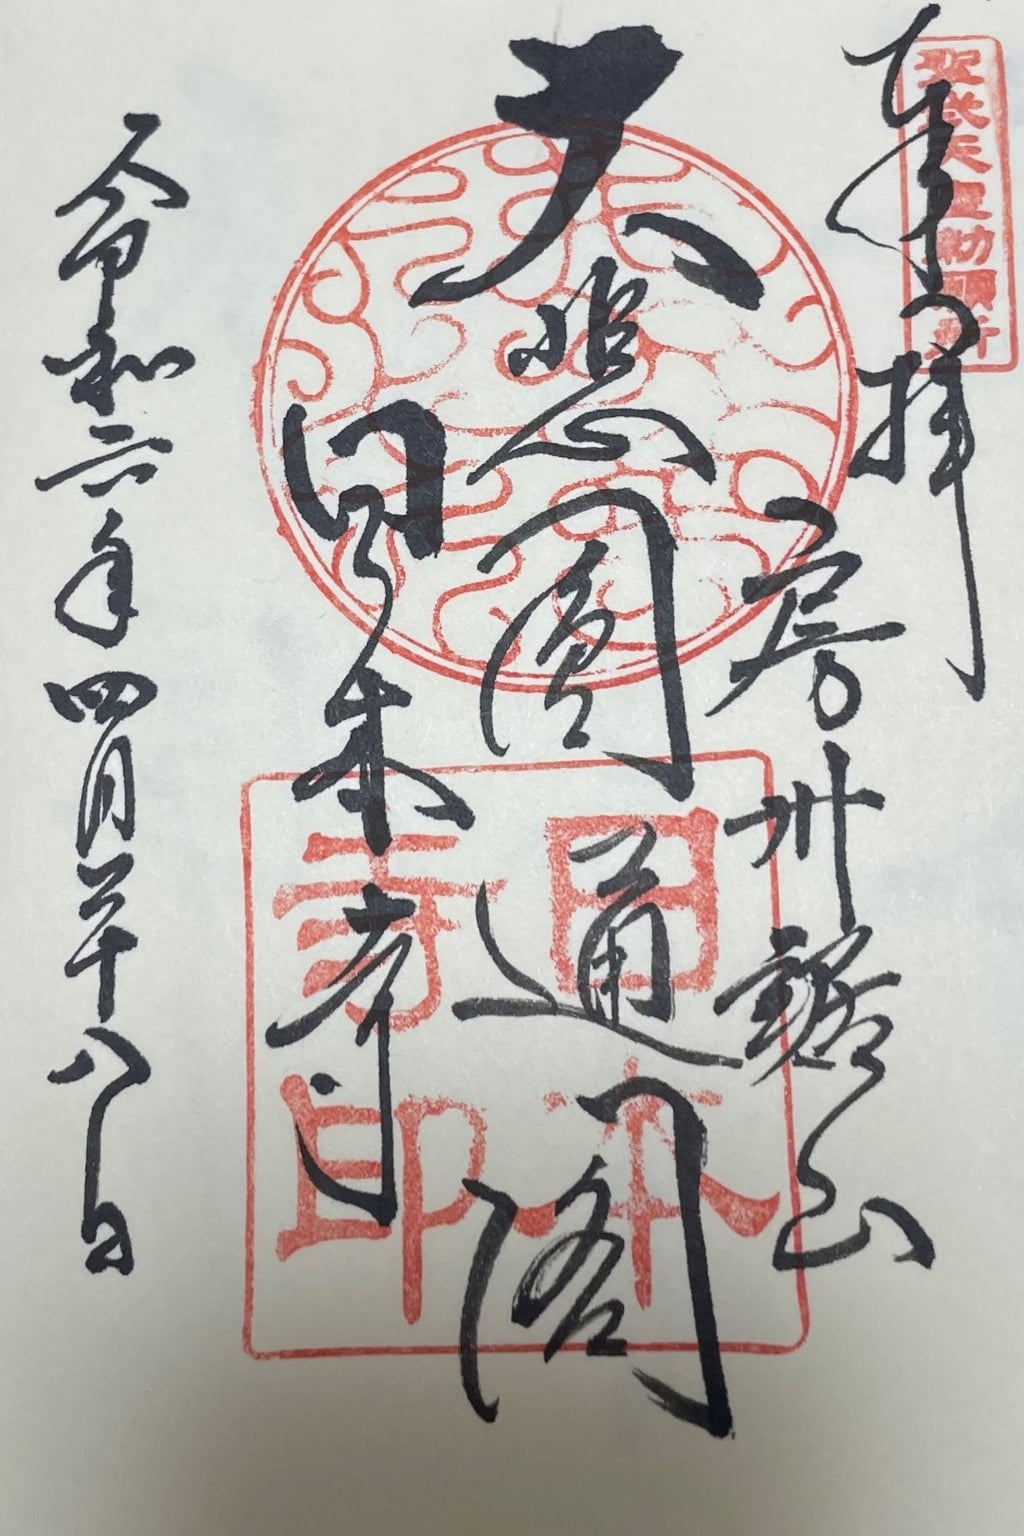 聖武天皇勅願所
奉拝
房州鋸山
大悲圓通閣
日本寺
日本寺印
令和六年四月二十八日